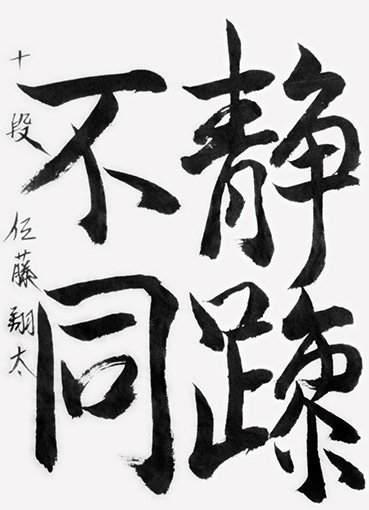 静躁
不同
十段 佐藤翔太